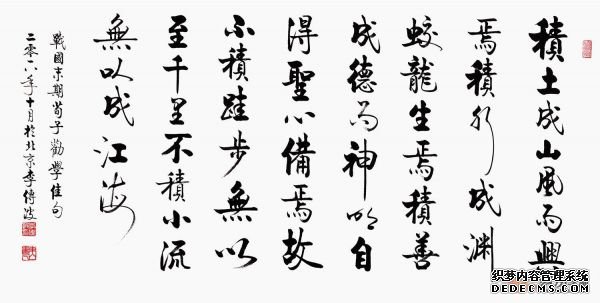 積土成山風雨興
焉積水成渊
蛟龍生焉積善
成德而神明自
得聖心備焉故
不積跬步無以
至千里不積小流
無以成江海
戰國末期荀子勸學佳句
二零一八年十月於北京李傳波
织梦内容管理系统
DEDECMS.COM